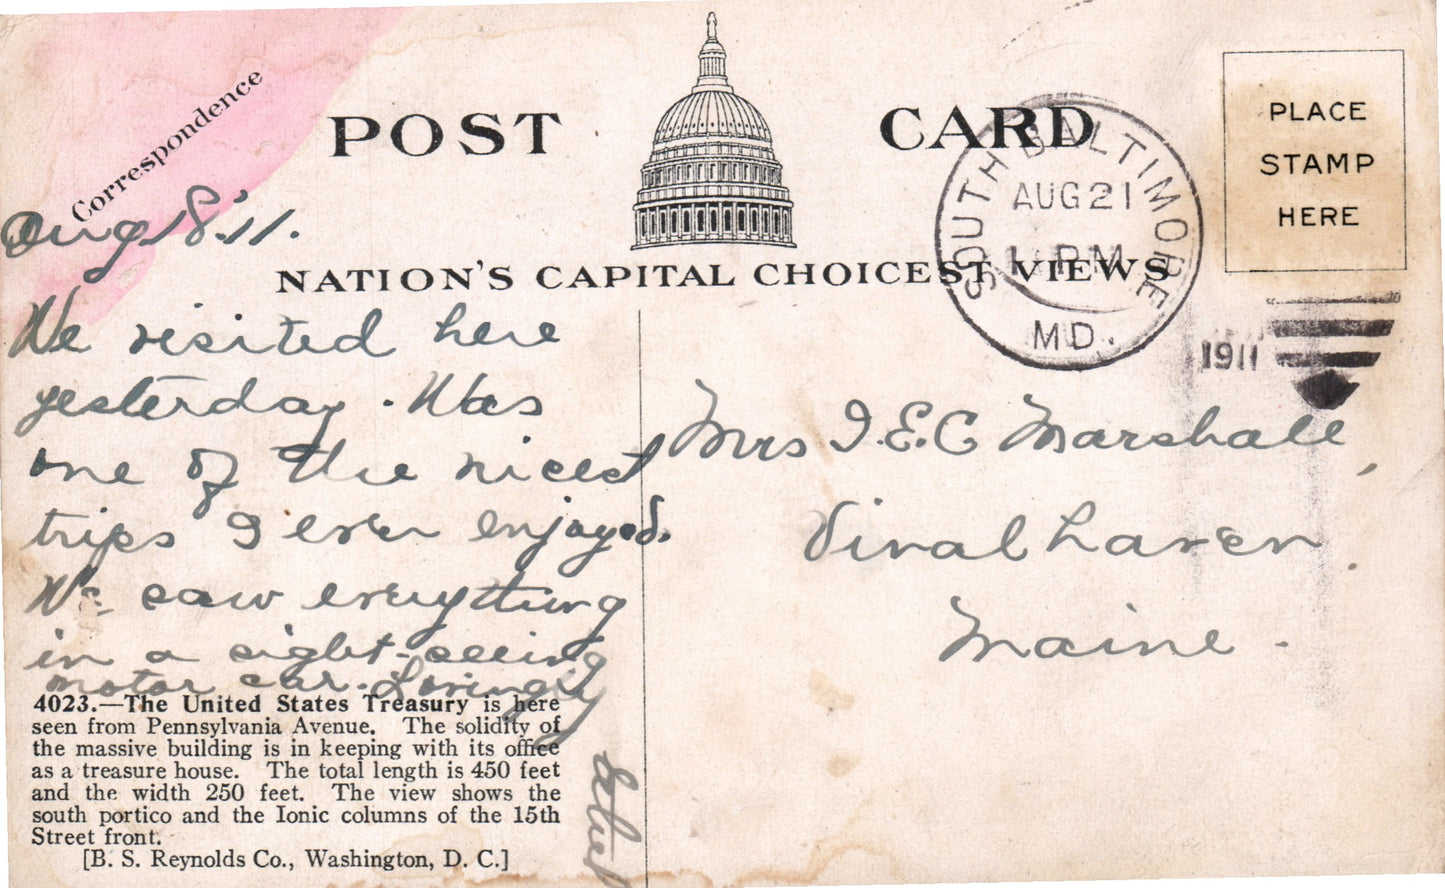 Correspondence
POST CARD
NATION'S CAPITAL CHOICEST VIEWS
PLACE
STAMP
HERE
SOUTH BALTIMORE
AUG 21
PM
MD.
1911
Aug 18. '11.
We visited here
yesterday. Was
one of the nicest
trips I ever enjoyed.
We saw everything
in a sight-seeing
motor car. Lovingly
Ethel
Mrs I.E.C Marshall,
Vinalhaven,
Maine.
4023.—The United States Treasury is here
seen from Pennsylvania Avenue. The solidity of
the massive building is in keeping with its office
as a treasure house. The total length is 450 feet
and the width 250 feet. The view shows the
south portico and the Ionic columns of the 15th
Street front.
[B. S. Reynolds Co., Washington, D. C.]